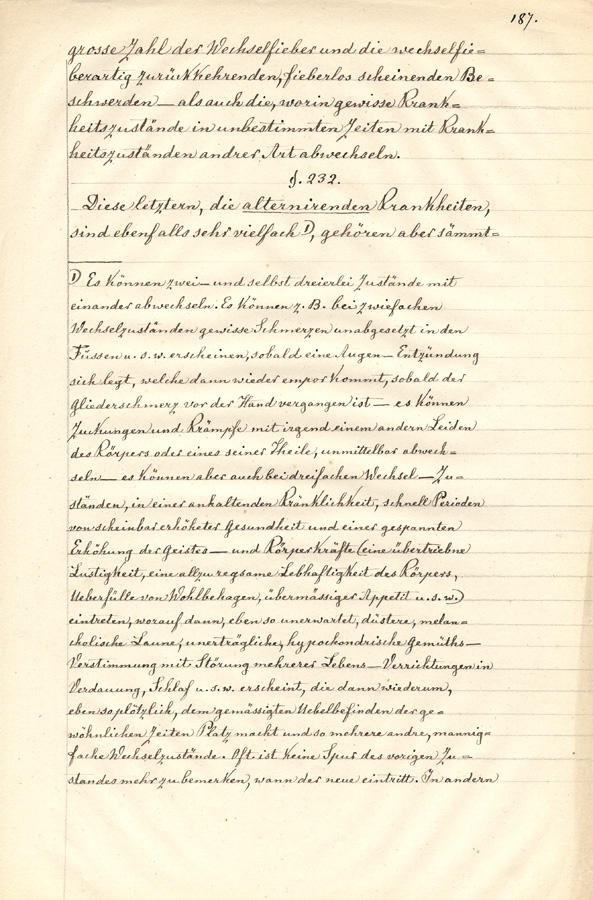 187.
grosse Zahl der Wechselfieber und die wechselfie=
berartig zurückkehrenden, fieberlos scheinenden Be=
schwerden — als auch die, worin gewisse Krank=
heitszustände in unbestimmten Zeiten mit Krank=
heitszuständen andrer Art abwechseln.
§. 232.
Diese letztern, die alternirenden Krankheiten,
sind ebenfalls sehr vielfach 1), gehören aber sämmt=
1) Es können zwei — und selbst dreierlei Zustände mit
einander abwechseln. Es können z. B. bei zwiefachen
Wechselzuständen gewisse Schmerzen unabgesetzt in den
Füssen u. s. w. erscheinen, sobald eine Augen — Entzündung
sich legt, welche dann wieder empor kommt, sobald der
Gliederschmerz vor der Hand vergangen ist — es können
Zuckungen und Krämpfe mit irgend einem andern Leiden
des Körpers oder eines seiner Theile, unmittelbar abwech=
seln — es können aber auch bei dreifachen Wechsel — Zu=
ständen, in einer anhaltenden Kränklichkeit, schnell Perioden
von scheinbar erhöheter Gesundheit und einer gespannten
Erhöhung der Geistes — und Körperkräfte (eine übertriebne
Lustigkeit, eine allzu regsame Lebhaftigkeit des Körpers,
Ueberfülle von Wohlbehagen, übermässiger Appetit u. s. w.)
eintreten, worauf dann, eben so unerwartet, düstere, melan=
cholische Laune, unerträgliche, hypochondrische Gemüths —
Verstimmung mit Störung mehrerer Lebens — Verrichtungen in
Verdauung, Schlaf u. s. w. erscheint, die dann wiederum,
eben so plötzlich, dem gemässigten Uebelbefinden der ge=
wöhnlichen Zeiten Platz macht und so mehrere andre, mannig=
fache Wechselzustände. Oft ist keine Spur des vorigen Zu=
standes mehr zu bemerken, wann der neue eintritt. In andern